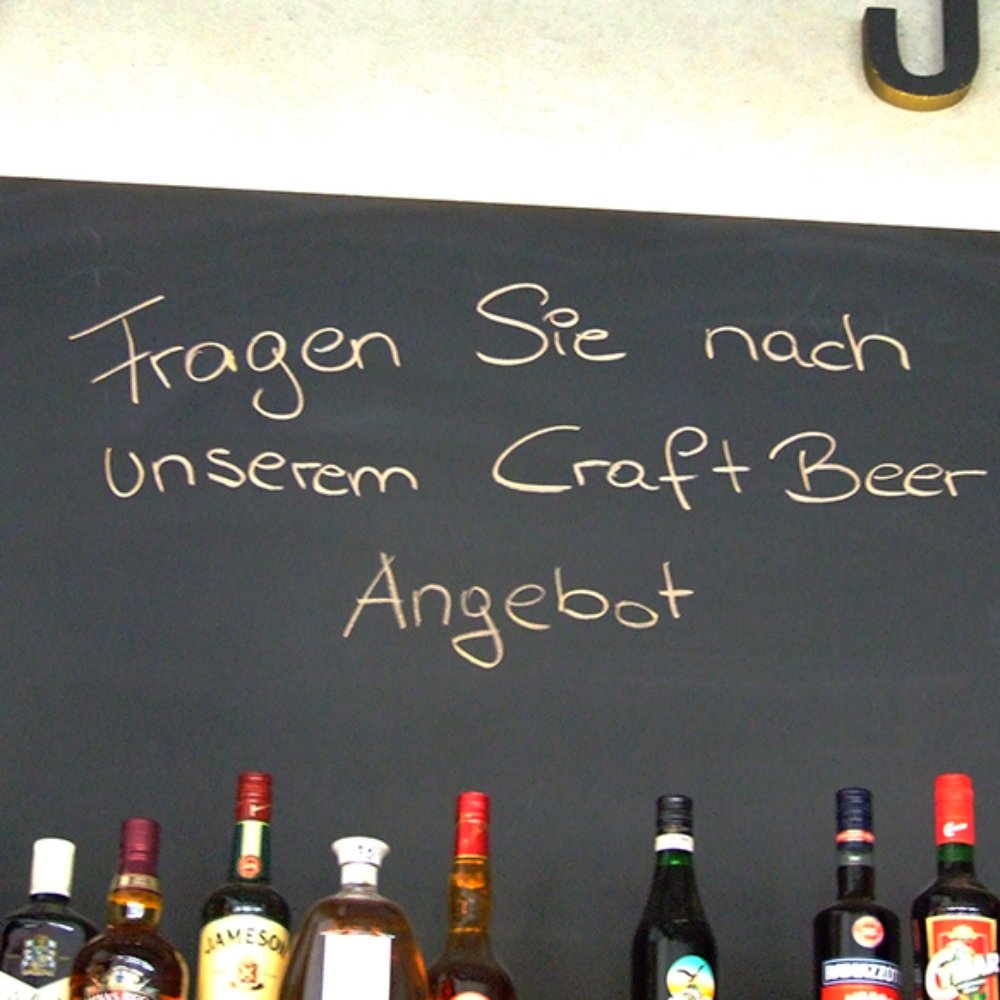 J
Fragen Sie nach
unserem Craft Beer
Angebot
JAMESON
RAMAZZOTTI
CYNAR